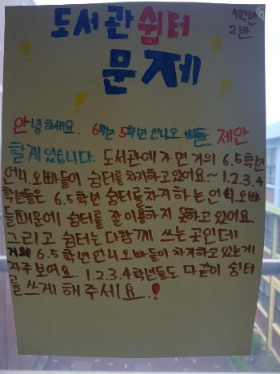 도서관 쉼터
문제
4학년
2반
안녕하세요. 6학년 5학년 언니오빠들 제안
할게 있습니다. 도서관에 가면 거의 6.5학년
언니.오빠들이 쉼터를 차지하고있어요~ 1.2.3.4
학년들도 6.5학년 쉼터를차지하는 언니.오빠
들 때문에 쉼터를 잘 이용하지 못하고 있어요
그리고 쉼터는 다함께 쓰는 곳인데
거의 6.5학년 언니오빠들이 차지하고 있는게
자주 보여요. 1.2.3.4학년들도 다같이 쉼터
를 쓰게 해주세요!